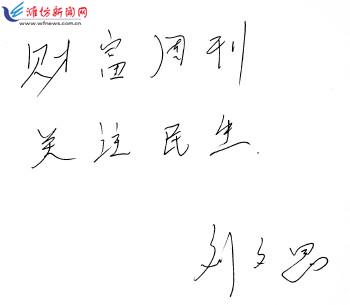 潍坊新闻网
www.wfnews.com.cn
财富周刊
关注民生.
刘文思